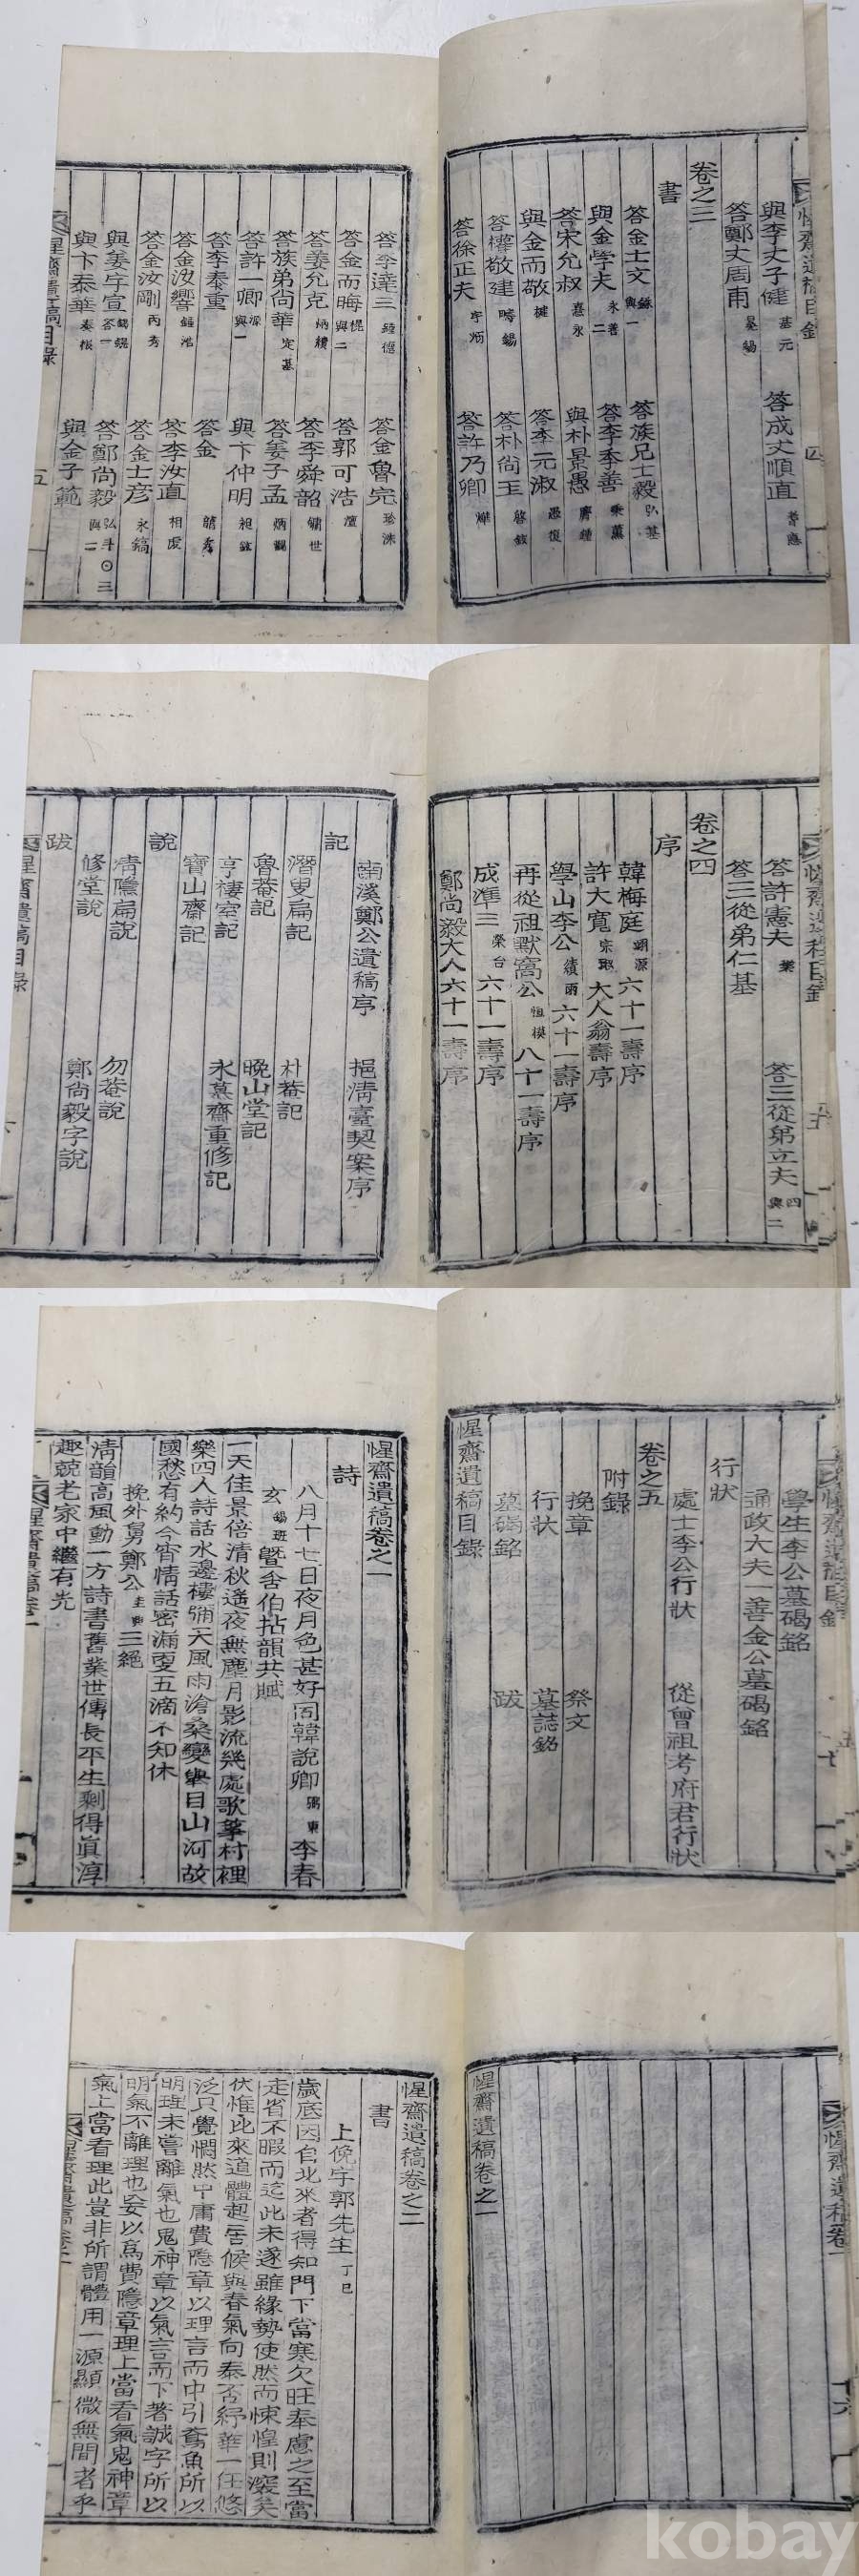 惺齋遺稿目錄
四
與李丈子健 基元
答成丈順直
答鄭丈周甫
卷之三
書
答金士文
答族兄士毅 弘基
與金學夫 永善 二
答李季善 秉薰
答宋允叔 喜永
與朴景愚
與金而敬
答李元淑
答權敬建 時錫
答朴尚玉
答徐正夫 宇炳
答許乃卿
答李達三 鍾僖
答金魯完 珍洙
答金而晦
答郭可浩
答姜允克 炳績
答李舜韶 世
答族弟尚華 定基
答姜子孟
答許一卿 源 與一
與卞仲明
答李泰重
答金
答金汝響 鍾浩
答李汝直 相虔
答金汝剛 丙秀
答金士彦 永鎬
與姜字宣
答鄭尚毅 弘斗 〇三 與二
與卞泰華 泰根
與金子範
惺齋遺稿目錄
五
惺齋遺稿目錄
答許憲夫
答三從弟立夫 四 與二
答三從弟仁基
卷之四
序
韓梅庭 六十一壽序
許大寬 大人翁壽序
學山李公 績雨 六十一壽序
再從祖默窩公 恒模 八十一壽序
成準三 榮台 六十一壽序
鄭尚毅大人六十一壽序
南溪鄭公遺稿序
挹淸臺契案序
記
潛叟扁記
朴菴記
魯菴記
晩山堂記
亨棲室記
永慕齋重修記
寶山齋記
說
淸隱扁說
勿菴說
修堂說
鄭尚毅字說
跋
惺齋遺稿目錄
惺齋遺稿目錄
七
學生李公墓碣銘
通政大夫一善金公墓碣銘
行狀
處士李公行狀
從曾祖考府君行狀
卷之五
附錄
挽章
祭文
行狀
墓誌銘
墓碣銘
跋
惺齋遺稿目錄
惺齋遺稿卷之一
詩
八月十七日夜月色甚好同韓說卿 李春
玄 錫班 曁舍伯拈韻共賦
一天佳景倍清秋遙夜無塵月影流幾處歌筝村裡
樂四人詩話水邊樓彌天風雨滄桑變擧目山河故
國愁有約今宵情話密滿更五滴不知休
挽外舅鄭公 圭 三絕
淸韻高風動一方詩書舊業世傳長平生剩得眞淳
趣兢老家中繼有先
惺齋遺稿卷一
惺齋遺稿卷一
惺齋遺稿卷之一
惺齋遺稿卷之二
書
上俛宇郭先生 丁巳
歲底因自北來者得知門下當寒欠旺奉慮之至當
走省不暇而迄此未遂雖緣勢使然而悚惶則深矣
伏惟比來道體起居候與春氣向泰否紓華一任悠
泛只覺憫然中庸費隱章以理言而中引鳶魚所以
明理未嘗離氣也鬼神章以氣言而下著誠字所以
明氣不離理也妄以爲費隱章理上當看氣鬼神章
氣上當看理此豈非所謂體用一源顯微無間者乎
惺齋遺稿卷二
kobay